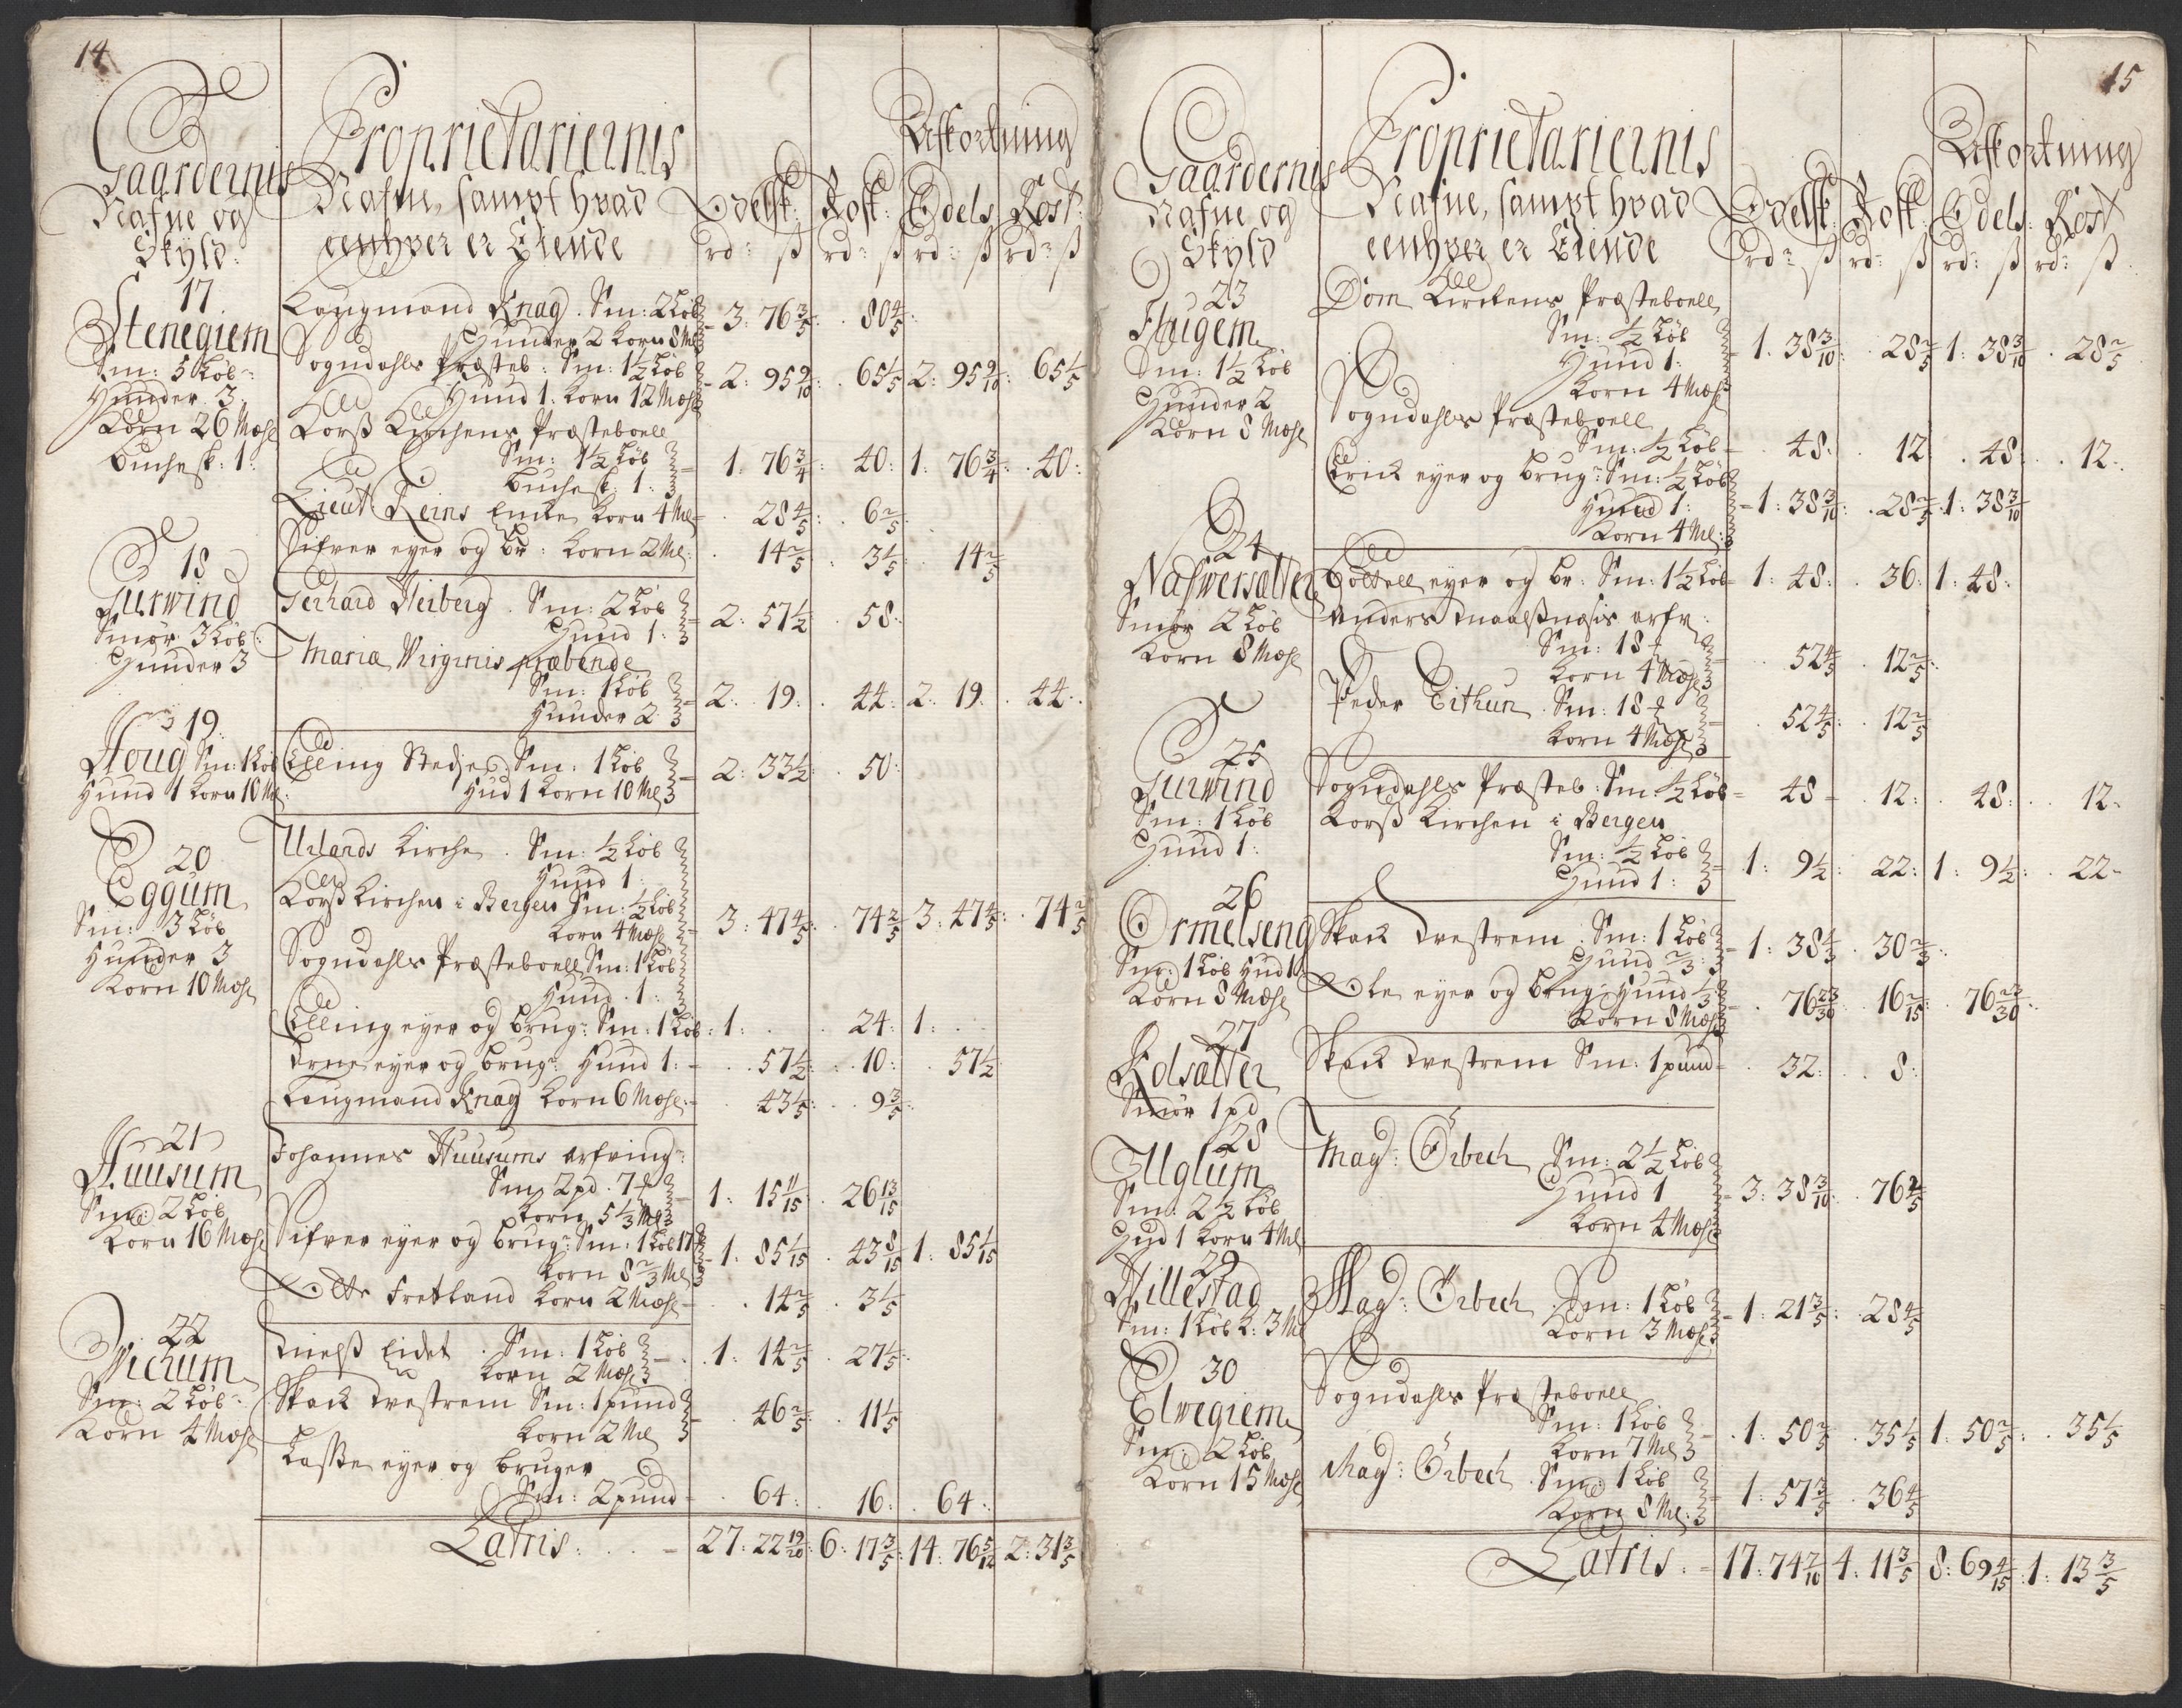 14
Gaardernis
Nafne og
Skyld
Proprietariernis
Nafne, sampt hvad
eenhver er Eiende
Afkortning
Odelsk: Rosk: Odels Rost:
rd: ß rd: ß rd: ß rd: ß
17
Stenegiem
Sm: 5 Løb
Hunder 3
Korn 26 Mæhl
Buchesk: 1:
Laugmand Knag. Sm: 2 Løb
Hunder 2 Korn 8 Ml 3: 76 3/5: 80 4/5:
Sogndahls Præsteb: Sm: 1 1/2 Løb
Hund 1: Korn 12 Mæhl 2: 95 9/10: 65 1/5 2: 95 9/10: 65 1/5
Korß Kirchens Præsteboell
Sm: 1 1/2 Løb
Buchesk: 1: 1: 76 3/4: 40: 1: 76 3/4: 40:
Lieut Reins Enke Korn 4 Ml 28 4/5: 6 2/5
Sifver eyer og br: Korn 2 Ml: 14 2/5 3 1/5 14 2/5
18
Gurwind
Smør 3 Løb:
Hunder 3
Gerhard Heiberg. Sm: 2 Løb
Hund 1: 2: 57 1/2 58:
Mariæ Virginis præbende
Sm: 1 Løb
Hunder 2 2: 19: 44: 2: 19: 44:
19
Houg Sm: 1 Løb
Hund 1 Korn 10 Ml:
Elling Stedje Sm: 1 Løb
Hud 1 Korn 10 Ml 2: 33 1/2: 50:
20
Eggum
Sm: 3 Løb
Hunder 3
Korn 10 Mæhl
Urlands Kirche. Sm: 1/2 Løb
Hund 1:
Korß Kirchen i Bergen Sm: 1/2 Løb
Korn 4 Mæhl 3: 47 4/5: 74 2/5 3: 47 4/5: 74 2/5
Sogndahls Præsteboell Sm: 1 Løb
Hund: 1:
Elling eyer og brug: Sm: 1 Løb: 1: 24: 1:
Arne eyer og brug: Hund 1: 57 1/2: 10: 57 1/2
Laugmand Knag Korn 6 Mæhl: 43 1/5: 9 3/5:
21
Huusum
Sm: 2 Løb
Korn 16 Mæhl
Johannes Huusums arfving:
Sm: 2 pd. 7
Korn 5 1/3 Ml 1: 15 11/15 26 13/15
Sifver eyer og brug: Sm: 1 Løb 17
Korn 8 2/3 Ml 1: 85 1/15 43 8/15 1: 85 1/15
Fretland Korn 2 Mæhl 14 2/5 3 1/5
22
Wichum
Sm: 2 Løb
Korn 4 Mæhl
Nielß Eidet. Sm: 1 Løb
Korn 2 Mæhl 1: 14 2/5 27 1/5
Skack Tvestrem Sm: 1 pund
Korn 2 Ml 46 2/5: 11 1/5
Laße eyer og bruger
Sm: 2 pund 64: 16: 64:
Latris: 27: 22 19/20: 6: 17 3/5: 14: 76 5/12 2: 31 3/5
15
Gaardernis
Nafne og
Skyld
Proprietariernis
Nafne, sampt hvad
eenhver er Eiende
Afkortning
Odelsk: Rosk: Odels: Rost
rd: ß rd: ß rd: ß rd: ß
23
Flugem
Sm: 1 1/2 Løb
Hunder 2
Korn 8 Mæhl
Dom Kirchens Præsteboell
Sm: 1/2 Løb
Hund 1:
Korn 4 Mæhl 1: 38 3/10: 28 2/5 1: 38 3/10 28 2/5
Sogndahls Præsteboell
Sm: 1/2 Løb 48: 12 48: 12:
Erick eyer og brug: Sm: 1/2 Løb
Hund 1:
Korn 4 Ml: 1: 38 3/10: 28 2/5 1: 38 3/10
24
Nafwersætter
Smør 2 Løb
Korn 8 Mæhl
eyer og br: Sm: 1 1/2 Løb 1: 48: 36: 1: 48:
Anders arfv:
Sm: 18
Korn 4 Mæhl 52 4/5 12 2/5:
Peder Eithun Sm: 18
Korn 4 Mæhl 52 4/5: 12 2/5
25
Gurwind
Sm: 1 Løb
Hund 1:
Sogndahls Præsteb: Sm: 1/2 Løb 48 12: 48: 12:
Korß Kirchen i Bergen
Sm: 1/2 Løb
Hund 1: 1: 9 1/2: 22: 1: 9 1/2: 22
26
Ormelseng
Sm: 1 Løb Hud 1:
Korn 8 Mæhl
Skack Tvestrem: Sm: 1 Løb
Hund 2/3: 1: 38 1/3 30 2/3:
Ole eyer og brug: Hund 1/3
Korn 8 Mæhl 76 23/30 16 2/15: 76 23/30:
27
Kolsætter
Smør 1 pd
Skack Tvestrem Sm: 1 pund 32: 8:
28
Uglum
Sm: 2 1/2 Løb
Hud 1 Korn 4 Ml
Mag: Ørbech Sm: 2 1/2 Løb
Hund 1
Korn 4 Mæhl 3: 38 3/10: 76 2/5
29
Hillestad
Sm: 1 Løb K: 3 Ml
Mag: Ørbech. Sm: 1 Løb
Korn 3 Mæhl 1: 21 3/5: 28 4/5
30
Elwegiem
Sm: 2 Løb
Korn 15 Mæhl
Sogndahls Præsteboell
Sm: 1 Løb
Korn 7 Ml 1: 50 2/5 35 1/5 1: 50 2/5: 35 1/5
Mag: Ørbech. Sm: 1 Løb
Korn 8 Ml: 1: 57 3/5 36 4/5
Latris: 17: 74 7/10 4: 11 3/5 8: 69 4/15: 1: 13 3/5